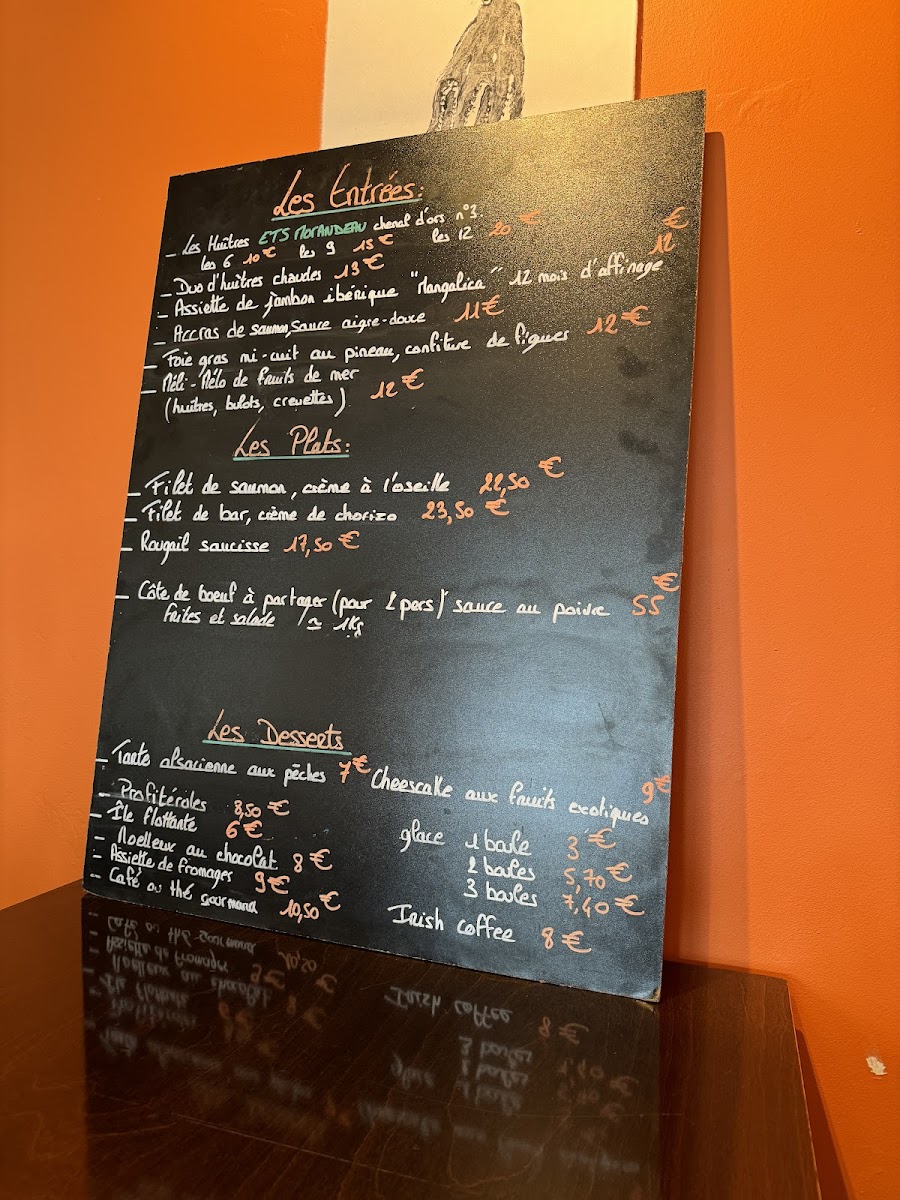 Les Entrées:
- Les Huîtres ETS MORANDEAU chenal d'ors n°3.
les 6 10€ les 9 15€ les 12 20€
- Duo d'huîtres chaudes 13€
- Assiette de jambon ibérique "Mangalica" 12 mois d'affinage 12€
- Accras de saumon, sauce aigre-doux 11€
- Foie gras mi-cuit au pineau, confiture de figues 12€
- Méli-Mélo de fruits de mer
(huîtres, bulots, crevettes) 12€
Les Plats:
- Filet de saumon, crème à l'oseille 22,50€
- Filet de bar, crème de chorizo 23,50€
- Rougail saucisse 17,50€
- Côte de boeuf à partager (pour 2 pers) sauce au poivre 55€
frites et salade ≃ 1Kg
Les Desserts
- Tarte alsacienne aux pêches 7€
- Profitéroles 8,50€
- Île flottante 6€
- Moelleux au chocolat 8€
- Assiette de fromages 9€
- Café ou thé gourmand 10,50€
Cheescake aux fruits exotiques 9€
glace 1 boule 3€
2 boules 5,70€
3 boules 7,40€
Irish coffee 8€